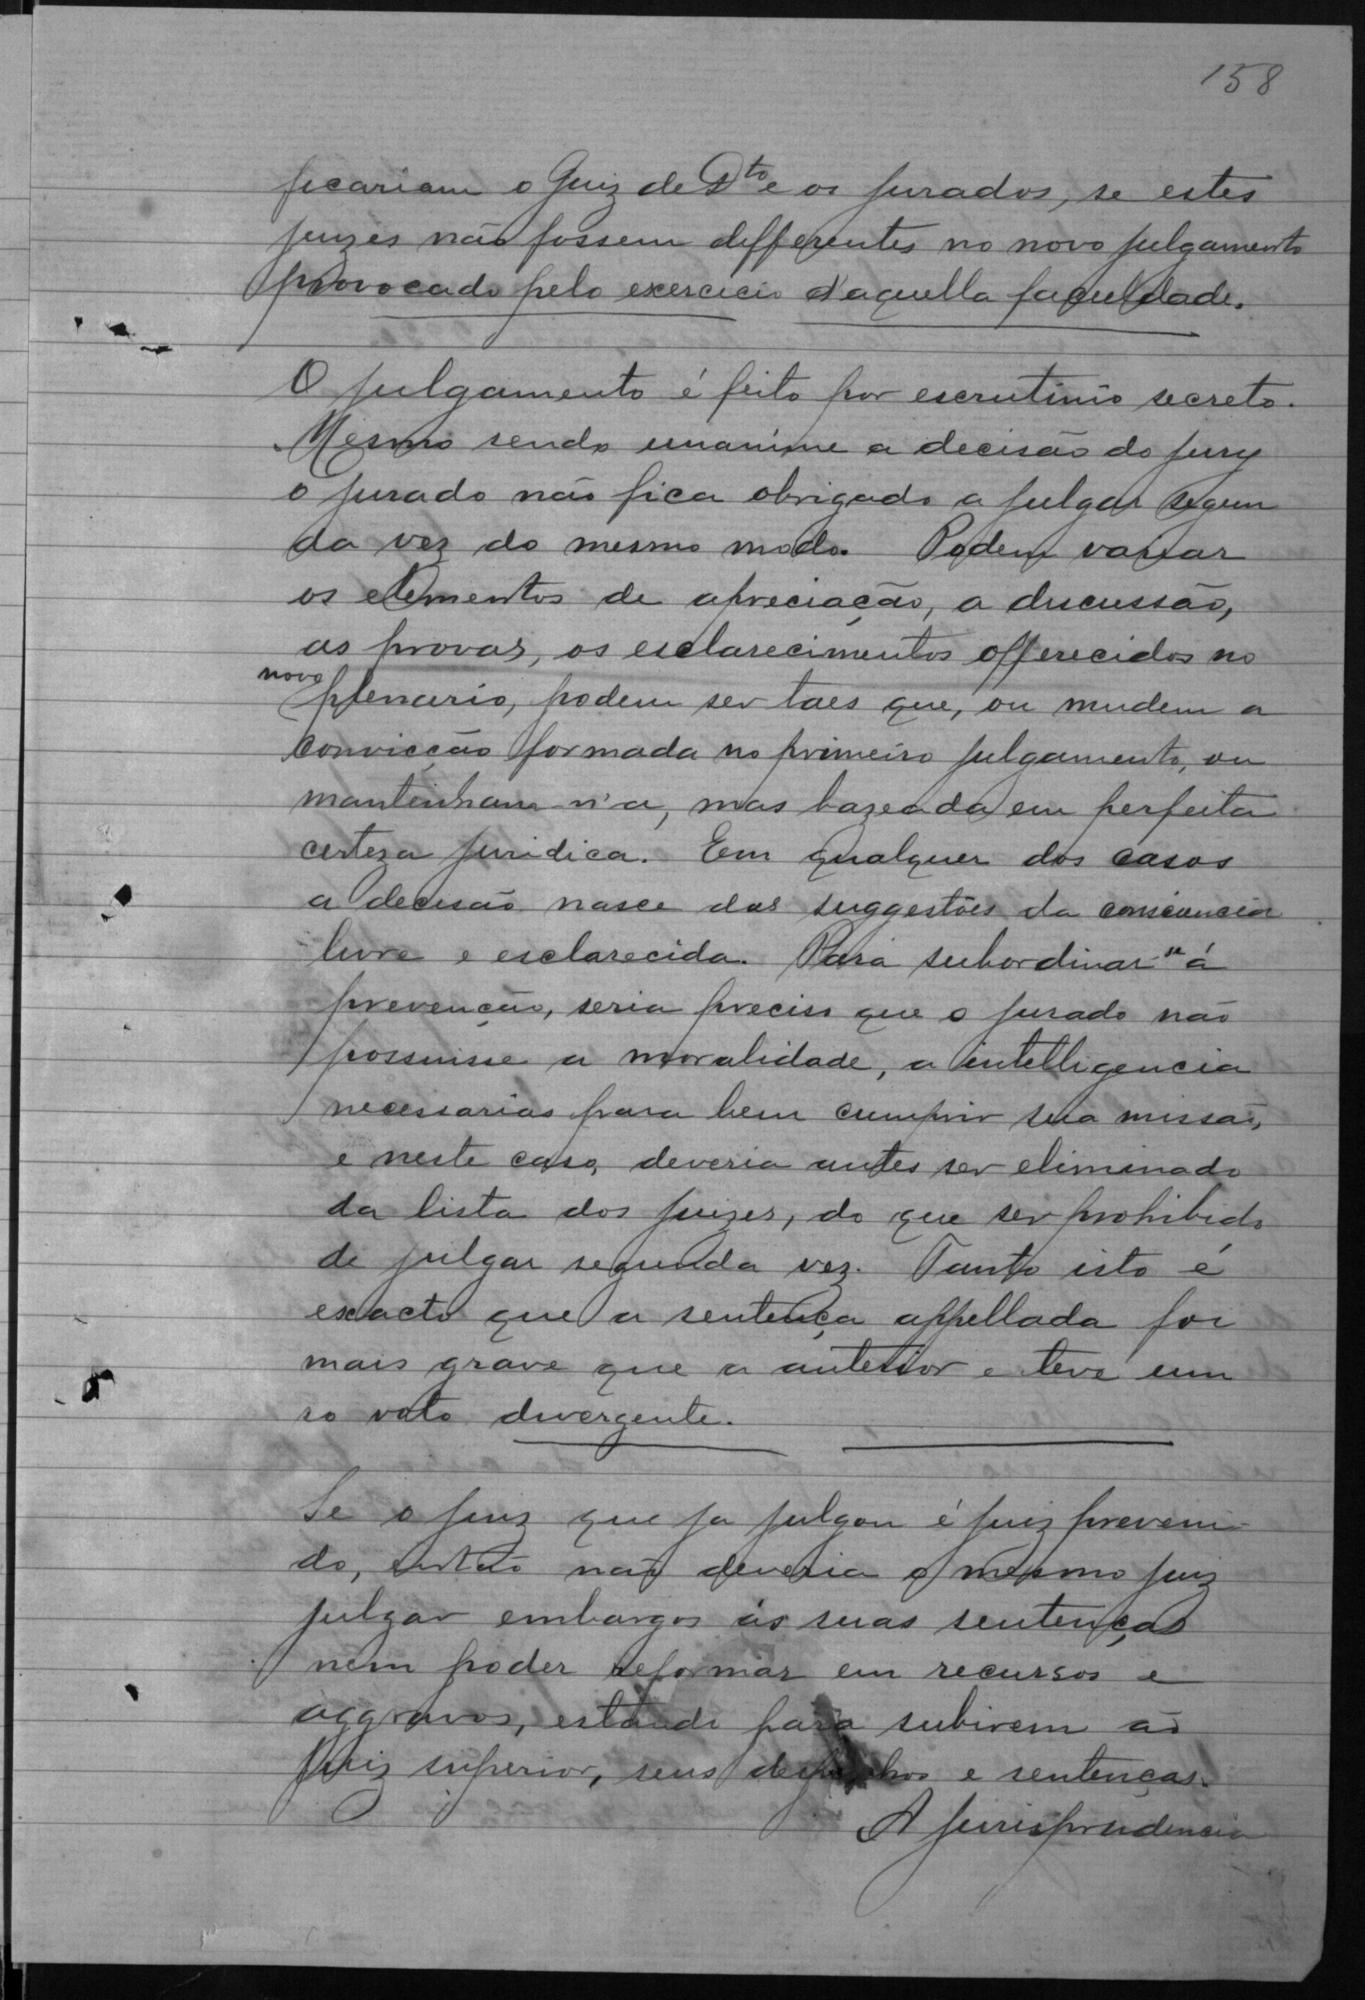 158
ficariam o Juiz de Dto e os jurados, se estes
juizes não fossem differentes no novo julgamento
provocado pelo exercicio d'aquella faculdade.
O julgamento é feito por escrutinio secreto.
Mesmo sendo unanime a decisão do jury
o jurado não fica obrigado a julgar segun
da vez do mesmo modo. Podem variar
os elementos de apreciação, a discussão,
as provas, os esclarecimentos offerecidos no
novo plenario, podem ser taes que, ou mudem a
convicção formada no primeiro julgamento, ou
mantenham-n'a, mas bazeada em perfeita
certeza juridica. Em qualquer dos casos
a decisão nasce das suggestões da consciencia
livre e esclarecida. Para subordinar se á
prevenção, seria preciso que o jurado não
possuisse a moralidade, a intelligencia
necessarias para bem cumprir sua missão,
e neste caso, deveria antes ser eliminado
da lista dos juizes, do que ser prohibido
de julgar segunda vez. Tanto isto é
exacto que a sentença appellada foi
mais grave que a anterior e teve um
so voto divergente.
Se o juiz que ja julgou é juiz preveni-
do, então não deveria o mesmo juiz
julgar embargos ás suas sentenças
nem poder reformar em recursos e
aggravos, estando para subirem ao
Juiz superior, seus despachos e sentenças.
A jurisprudencia